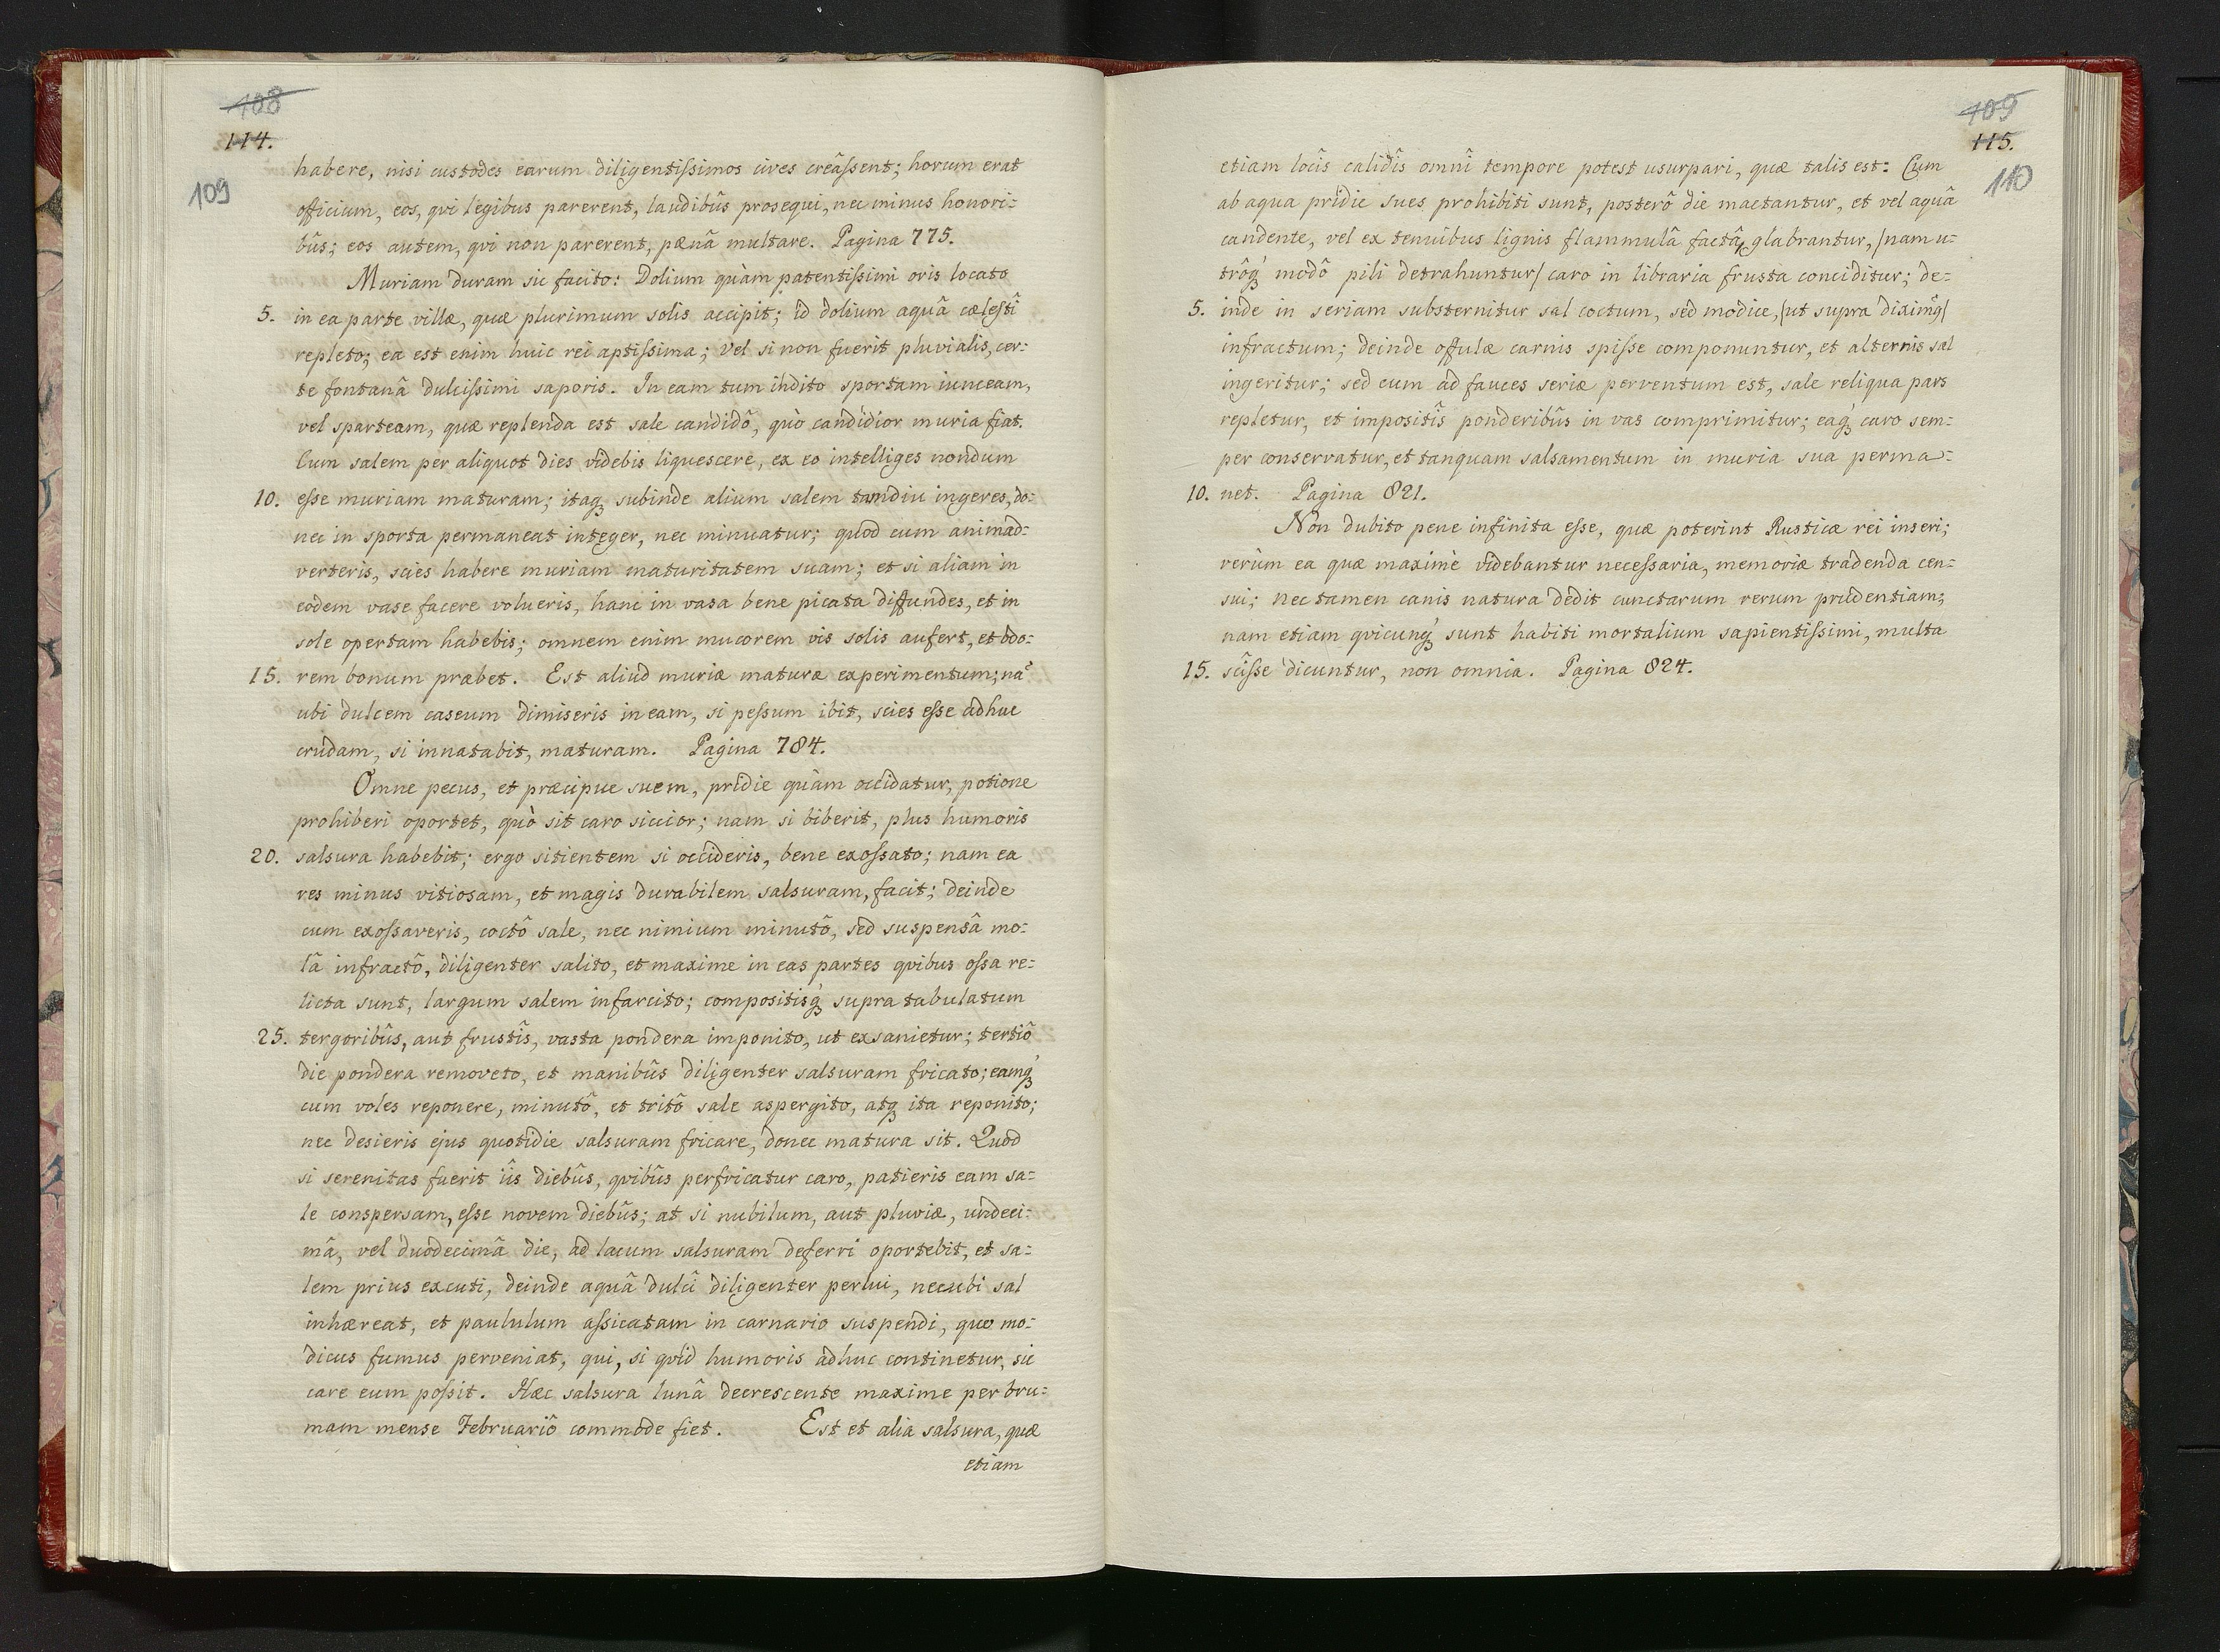 108
114.
109
habere, nisi custodes earum diligentiſsimos cives creâſsent; horum erat
officium, eos, qvi legibus parerent, laudibûs prosequi, nec minus honori=
bûs; eos autem, qvi non parerent, pœnâ multare. Pagina 775.
Muriam duram sic facito: Dolium quàm patentiſsimi oris locato
5. in ea parte villæ, quæ plurimum solis accipit; id dolium aquâ cœleſtî
repleto; ea est enim huic rei aptiſsima; vel si non fuerit pluvialis, cer=
te fontanâ dulciſsimi saporis. In eam tum indito sportam iunceam,
vel sparteam, quæ replenda est sale candidô, quò candidior muria fiat.
Cum salem per aliquot dies videbis liquescere, ex eo intelliges nondum
10. eſse muriam maturam; itaqꝫ subinde alium salem tamdiu ingeres, do=
nec in sporta permaneat integer, nec minuatur; quod cum animad=
verteris, scies habere muriam maturitatem suam; et si aliam in
eodem vase facere volueris, hanc in vasa bene picata diffundes, et in
sole opertam habebis; omnem enim mucorem vis solis aufert, et odo=
15. rem bonum præbet. Est aliud muriæ maturæ experimentum; nã
ubi dulcem caseum dimiseris in eam, si peſsum ibit, scies eſse adhuc
crudam, si innatabit, maturam. Pagina 784.
Omne pecus, et præcipue suem, pridie quàm occidatur, potione
prohiberi oportet, quò sit caro siccior; nam si biberit, plus humoris
20. salsura habebit; ergo sitientem si occideris, bene exoſsato; nam ea
res minus vitiosam, et magis durabilem salsuram, facit; deinde
cum exoſsaveris, coctô sale, nec nimium minutô, sed suspensâ mo=
lâ infractô, diligenter salito, et maxime in eas partes qvibus oſsa re=
licta sunt, largum salem infarcito; compositisqꝫ́ supra tabulatum
25. tergoribûs, aut frustîs, vasta pondera imponito, ut exsanietur; tertiô
die pondera removeto, et manibûs diligenter salsuram fricato; eamqꝫ́
cum voles reponere, minutô, et tritô sale aspergito, atqꝫ ita reponito;
nec desieris ejus quotidie salsuram fricare, donec matura sit. Quod
si serenitas fuerit iîs diebûs, qvibûs perfricatur caro, patieris eam sa=
le conspersam, eſse novem diebûs; at si nubilum, aut pluviæ, undeci=
mâ, vel duodecimâ die, ad lacum salsuram deferri oportebit, et sa=
lem prius excuti, deinde aquâ dulcî diligenter perlui, necubi sal
inhæreat, et paululum aſsicatam in carnario suspendi, quo mo=
dicus fumus perveniat, qui, si qvid humoris adhuc continetur, sic
care eum poſsit. Hæc salsura lunâ decrescente maxime per bru=
mam mense Februariô commode fiet. Est et alia salsura, quæ
etiam
109
115.
110
etiam locîs calidîs omnî tempore potest usurpari, quæ talis est: Cum
ab aqua pridie sues prohibiti sunt, posterô die mactantur, et vel aquâ
candente, vel ex tenuibus lignis flammulâ factâ, glabrantur, /nam u=
trôqꝫ́ modô pili detrahuntur/ caro in libraria frusta conciditur; de=
5. inde in seriam substernitur sal coctum, sed modice, /ut supra diximꝰ/
infractum; deinde offulæ carnis spiſse componuntur, et alternis sal
ingeritur; sed cum ad fauces seriæ perventum est, sale reliqua pars
repletur, et impositîs ponderibûs in vas comprimitur; eaqꝫ́ caro sem=
per conservatur, et tanquam salsamentum in muria sua perma=
10. net. Pagina 821.
Non dubito pene infinita eſse, quæ poterint Rusticæ rei inseri;
verùm ea quæ maximè videbantur neceſsaria, memoriæ tradenda cen=
sui; nec tamen canis natura dedit cunctarum rerum prudentiam;
nam etiam qvicunqꝫ́ sunt habiti mortalium sapientiſsimi, multa
15. scîſse dicuntur, non omnia. Pagina 824.